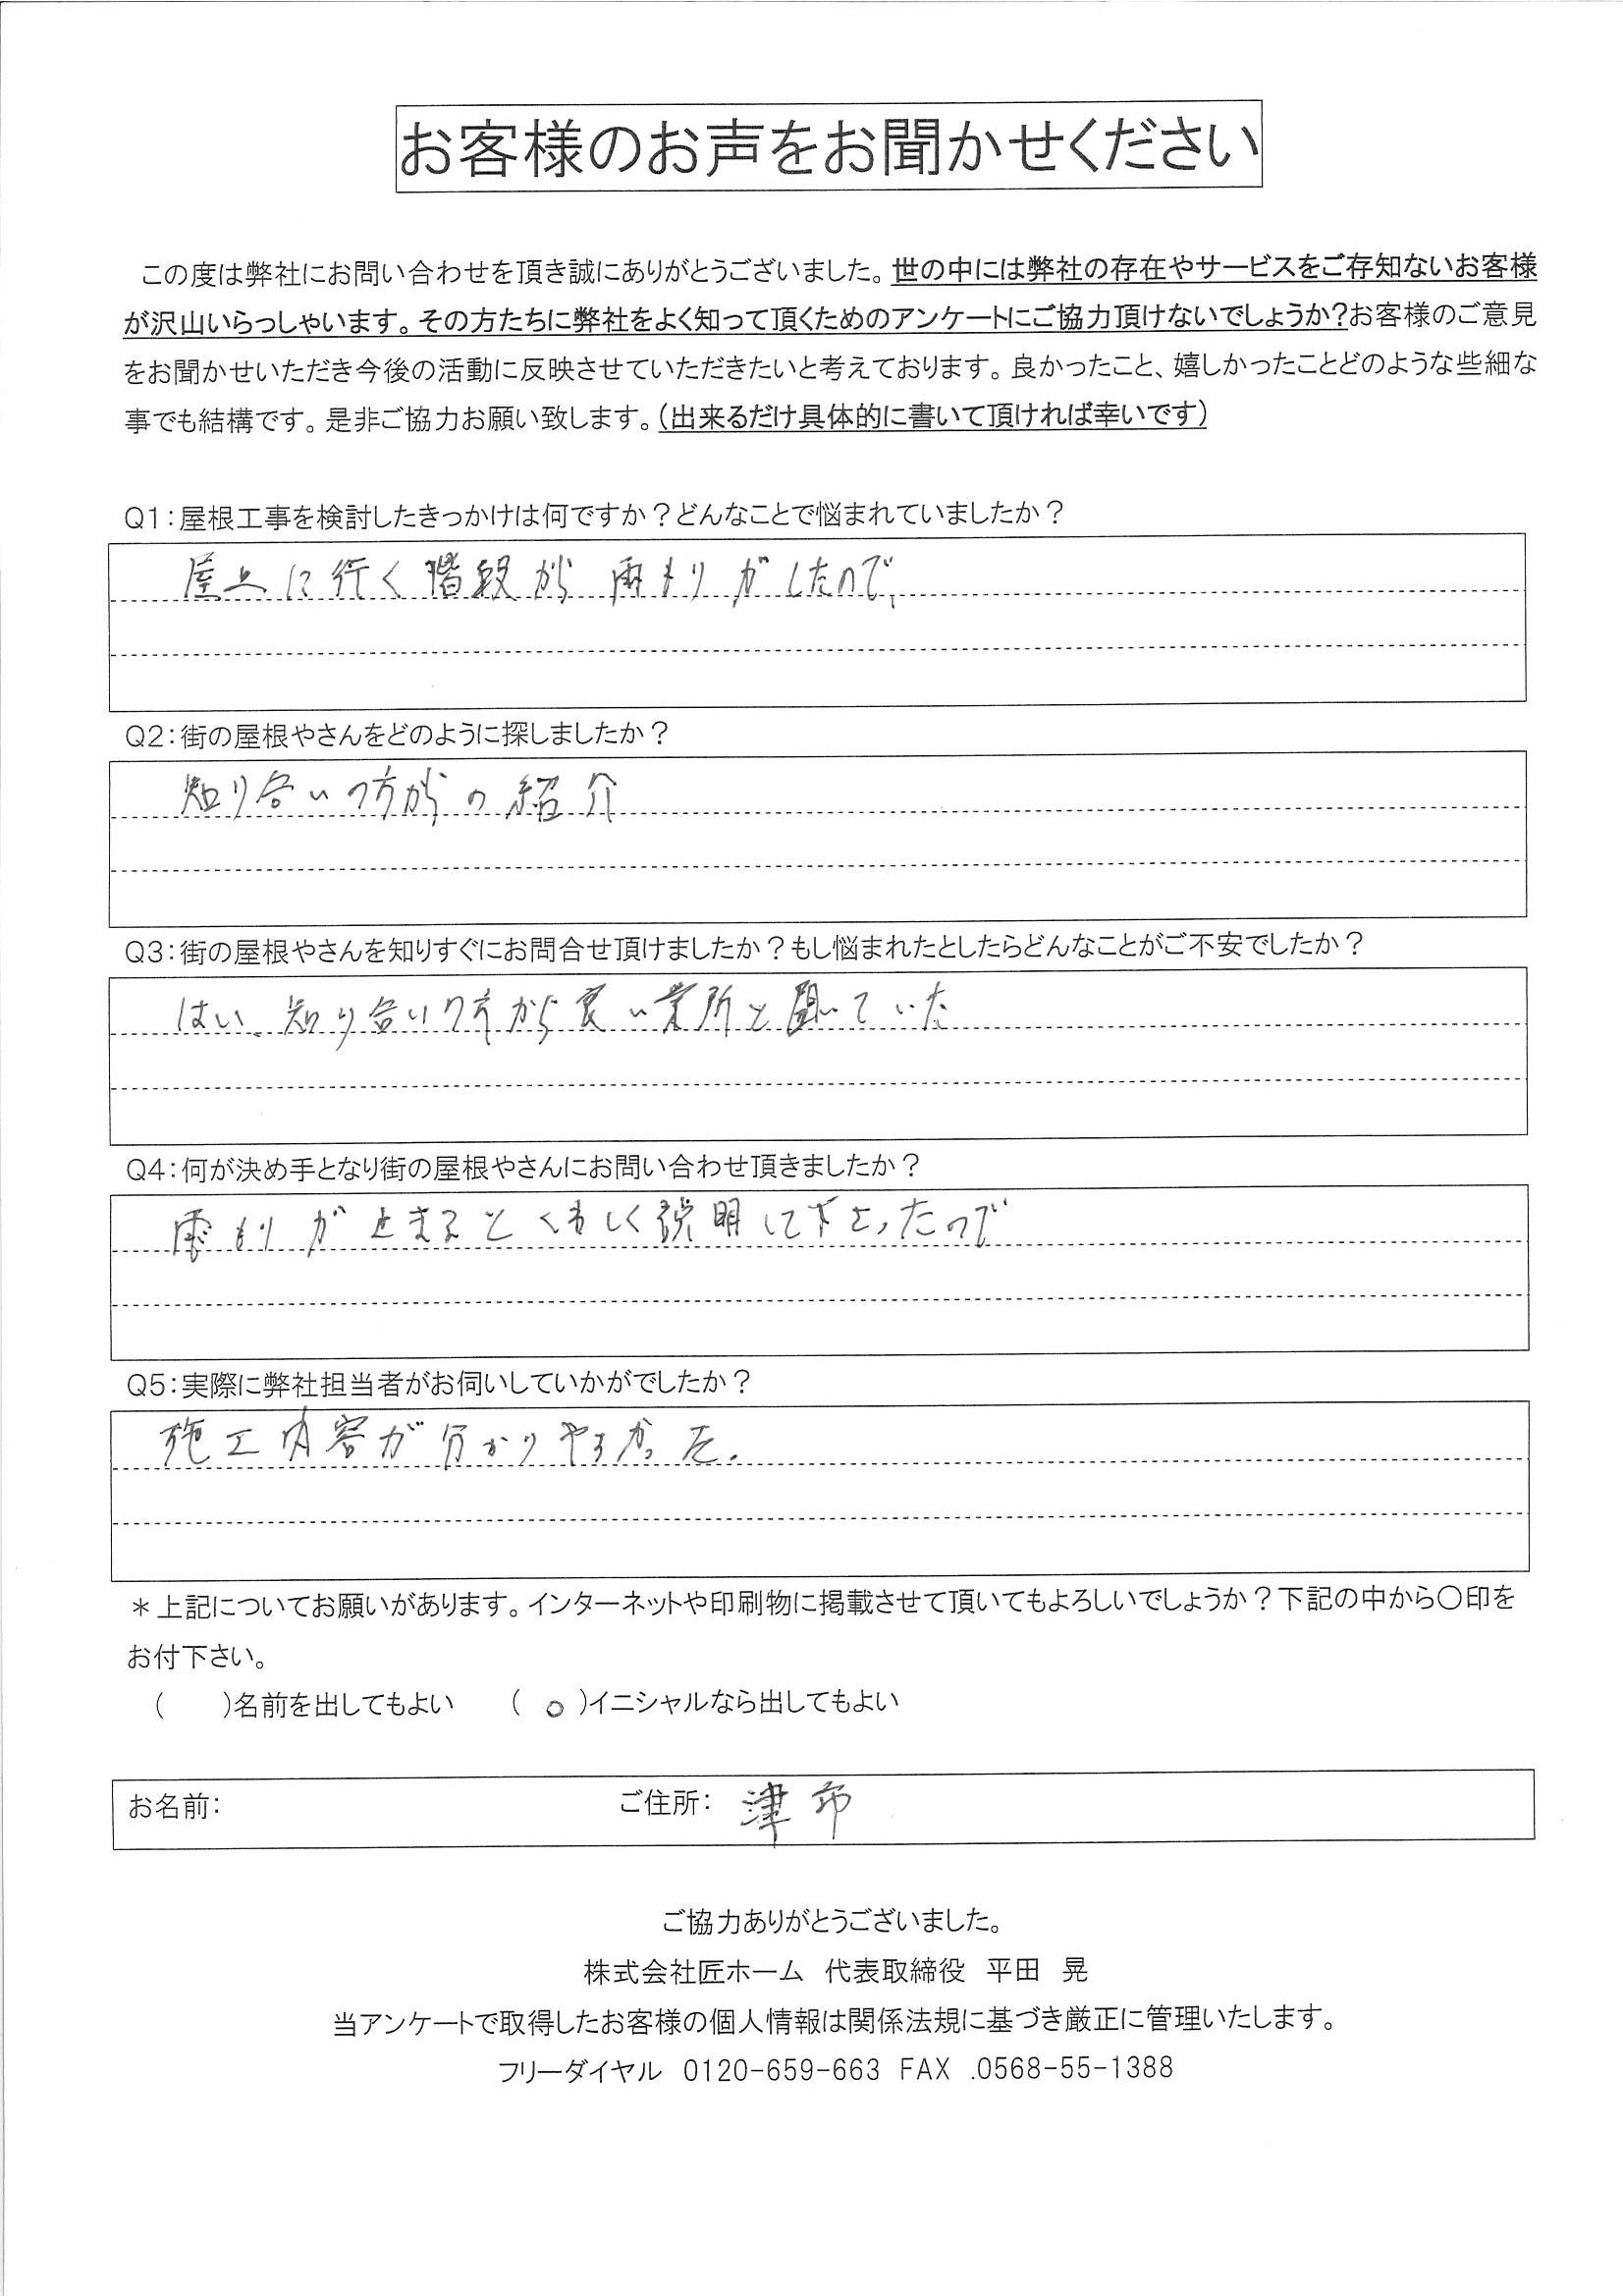 お客様のお声をお聞かせください
この度は弊社にお問い合わせを頂き誠にありがとうございました。世の中には弊社の存在やサービスをご存知ないお客様
が沢山いらっしゃいます。その方たちに弊社をよく知って頂くためのアンケートにご協力頂けないでしょうか?お客様のご意見
をお聞かせいただき今後の活動に反映させていただきたいと考えております。良かったこと、嬉しかったことどのような些細な
事でも結構です。是非ご協力お願い致します。(出来るだけ具体的に書いて頂ければ幸いです)
Q1:屋根工事を検討したきっかけは何ですか?どんなことで悩まれていましたか?
屋上に行く階段から雨もりがしたので、
Q2:街の屋根やさんをどのように探しましたか?
知り合いの方からの紹介
Q3:街の屋根やさんを知りすぐにお問合せ頂けましたか?もし悩まれたとしたらどんなことがご不安でしたか?
はい、知り合いの方から良い業所と聞いていた
Q4:何が決め手となり街の屋根やさんにお問い合わせ頂きましたか?
雨もりが止まるとくわしく説明して下さったので
Q5:実際に弊社担当者がお伺いしていかがでしたか?
施工内容が分かりやすかった.
*上記についてお願いがあります。インターネットや印刷物に掲載させて頂いてもよろしいでしょうか?下記の中から〇印を
お付下さい。
( )名前を出してもよい ( ○ )イニシャルなら出してもよい
お名前: ご住所: 津市
ご協力ありがとうございました。
株式会社匠ホーム 代表取締役 平田 晃
当アンケートで取得したお客様の個人情報は関係法規に基づき厳正に管理いたします。
フリーダイヤル 0120-659-663 FAX .0568-55-1388